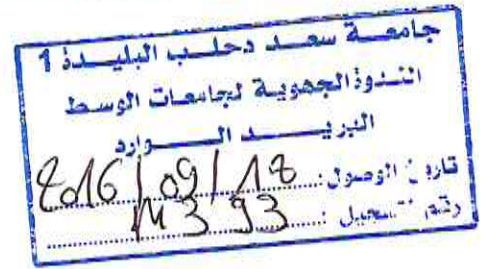 جامعة سعد دحلب البليدة 1
الندوة الجهوية لجامعات الوسط
البريد الوارد
تاريخ الوصول: 2016/09/18
رقم التسجيل: